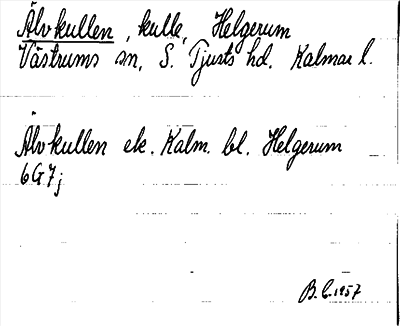 Älvkullen, kulle, Helgerum
Västrums sn, S. Tjusts hd. Kalmar l.
Älvkullen ek. Kalm. bl. Helgerum
6G7j
B.L. 1957